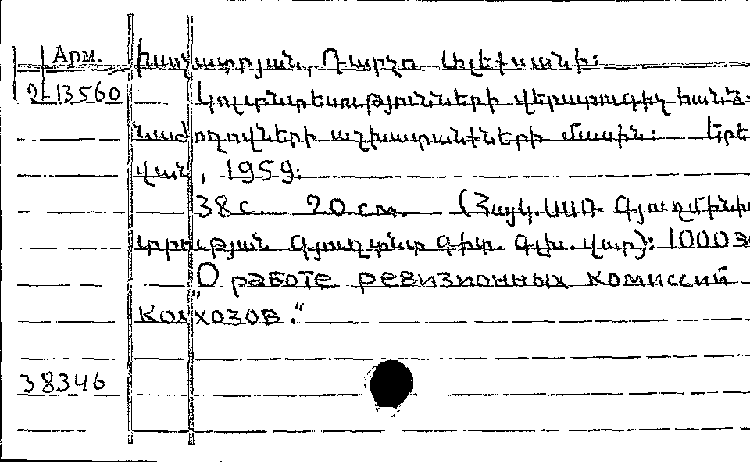 Арм. Խաչատրյան, Դարչո Ալեքսանի:
2-13560 Կոլտնտեսությունների վերաստուգիչ հանձ-
նաժողովների աշխատանքների մասին: Երե-
վան, 1959:
38 с 20 см. (Հայկ. ՍՍՌ Գյուղմինիս-
տրության Գյուղտնտ գիտ. գլխ. վարչ): 1000 э
"О работе ревизионных комиссий
колхозов."
38346